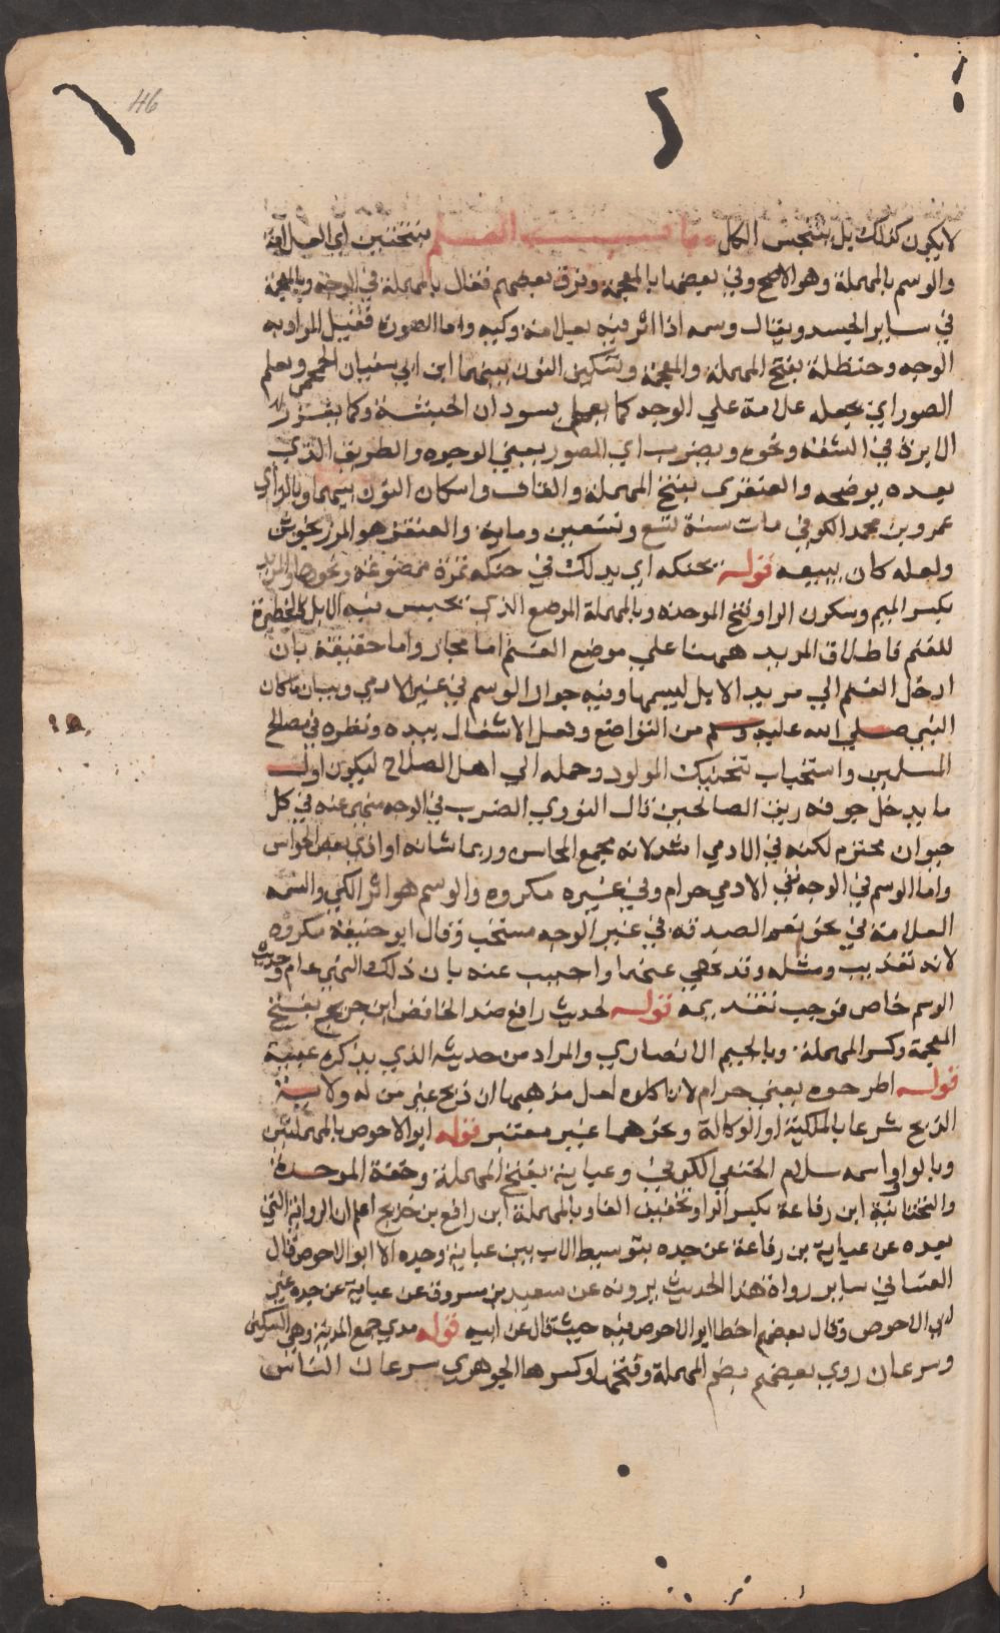 46
لا يكون كذلك بل يتنجس الكل باب العلم بفتحتين اي العلامة
والوسم بالمهملة وهو الاصح وفي بعضها بالمعجمة وفرق بعضهم فقال بالمهملة في الوجه وبالمعجمة
في ساير الجسد ويقال وسمه اذا اثر فيه بعلامة وكيه واما الصورة فقيل المراد به
الوجه وحنظلة بفتح المهملة والمعجمة وتسكين النون بينهما ابن ابي سفيان الجمحي ويعلم
الصور اي يجعله علامة علي الوجه كما يعمل بسودان الحبشة وكما يغرز
الابرة في الشفة ونحوه ويضرب اي الصور بمعني الوجوه والطريق الذي
بعده يوضحه والعنقزي بفتح المهملة والقاف واسكان النون بينهما وبالزاي
عمرو بن محمد الكوفي مات سنة تسع وتسعين وماية والعنقز هو المرزنجوش
ولعله كان يبيعه قوله يحنكه اي يدلك في حنكه تمرة ممضوغة ونحوها والمربد
بكسر الميم وسكون الرا وفتح الموحدة وبالمهملة الموضع الذي تحبس فيه الابل كالحظيرة
للغنم فاطلاق المربد ههنا علي موضع الغنم اما مجاز واما حقيقة بان
ادخل الغنم الي مربد الابل ليسمها وفيه جواز الوسم في غير الادمي وبيان ما كان
النبي صلي الله عليه وسلم من التواضع وفعل الاشغال بيده ونظره في مصالح
المسلمين واستحباب تحنيك المولود وحمله الي اهل الصلاح ليكون اول
ما يدخل جوفه ريق الصالحين قال النووي الضرب في الوجه منهي عنه في كل
حيوان محترم لكنه في الادمي اشد لانه مجمع المحاسن وربما شانه او اذي بعض الحواس
واما الوسم في الوجه ففي الادمي حرام وفي غيره مكروه والوسم هو اثر الكي والسمة
العلامة في نحو نعم الصدقة في غير الوجه مستحب وقال ابو حنيفة مكروه
لانه تعذيب ومثله وقد نهي عنهما واجيب عنه بان ذلك النهي عام وحديث
الوسم خاص فوجب تقديمه قوله لحديث رافع ضد الخافض ابن خديج بفتح
المعجمة وكسر المهملة وبالجيم الانصاري والمراد من حديثه الذي يذكره عقيبه
قوله اطرحوه يعني حرام لا تاكلوه لعل مذهبهما ان ذبح غير من له ولاية
الذبح شرعا بالملكية او الوكالة ونحوهما غير معتبر قوله ابو الاحوص بالمهملتين
وبالواو اسمه سلام الحنفي الكوفي وعباية بفتح المهملة وخفة الموحدة
والتحتانية ابن رفاعة بكسر الرا وتخفيف الفا وبالمهملة ابن رافع بن خديج اعلم ان الرواية التي
بعده عن عباية بن رفاعة عن جده بتوسيط الاب بين عباية وجده الا ابو الاحوص قال
الغساني ساير رواة هذا الحديث يرونه عن سعيد بن مسروق عن عباية عن جده غير
ابي الاحوص وقال بعضهم اخطا ابو الاحوص فيه حيث قال عن ابيه قوله مدي جمع المدية وهي السكين
وسرعان روي بعضهم بضم المهملة وفتحها وكسرها الجوهري سرعان الناس